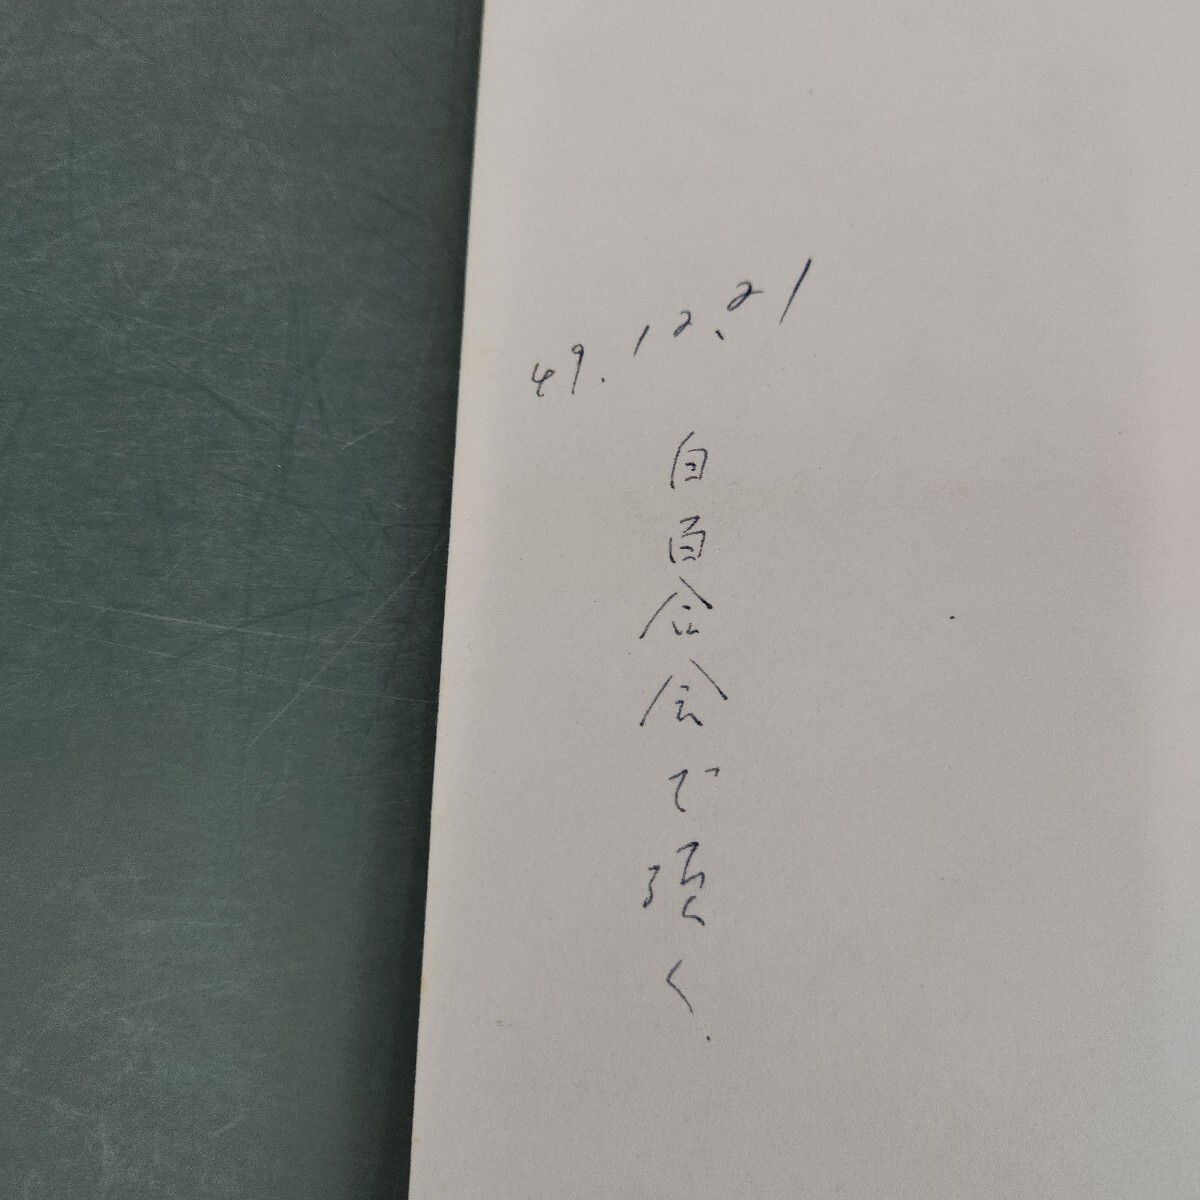 49.12.21
白百合会で頂く.